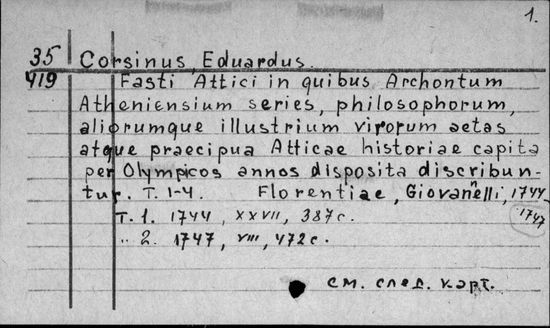 1.
35 Corsinus, Eduardus.
419 Fasti Attici in quibus Archontum
Atheniensium series, philosophorum,
aliorumque illustrium virorum aetas
atque praecipua Atticae historiae capita
per Olympicos annos disposita discribun-
tur. T. 1-4. Florentiae, Giovannelli, 1744
1747
T. 1. 1744, XXVII, 387 с.
" 2. 1747, VIII, 472 с.
см. след. карт.